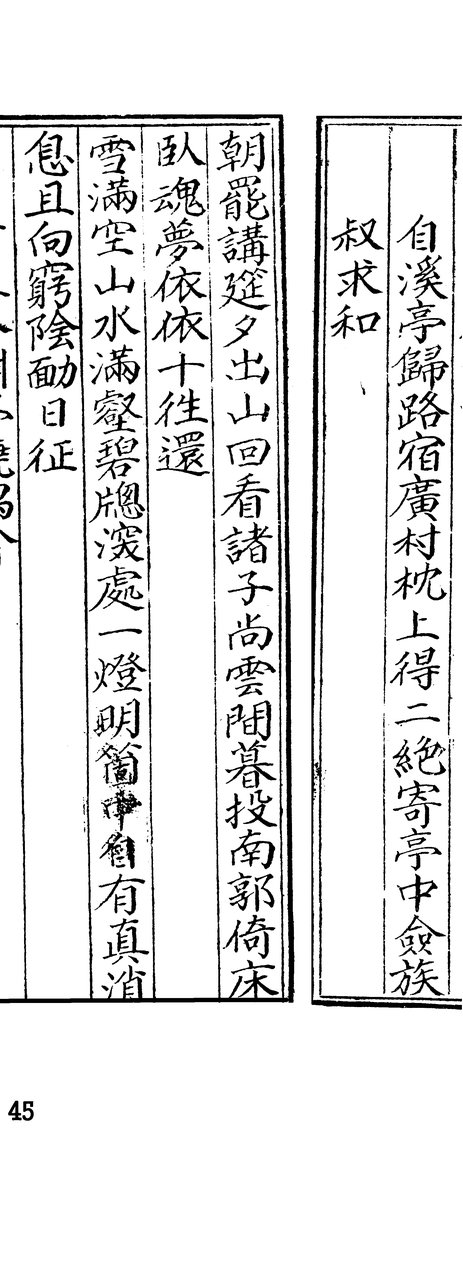 自溪亭歸路宿廣村枕上得二絶寄亭中僉族
叔求和
朝罷講筵夕出山回看諸子尚雲間暮投南郭倚床
臥魂夢依依十徃還
雪滿空山水滿壑碧牕深處一燈明箇中自有真消
息且向窮陰勔日征
45